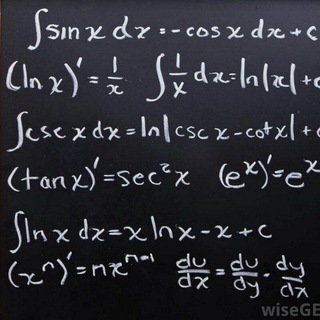 ∫sin x dx = -cos x dx + c
(ln x)' = 1/x   ∫1/x dx = ln|x| + c
∫csc x dx = ln|csc x - cot x| + c
(tan x)' = sec²x   (eˣ)' = eˣ
∫ln x dx = x ln x - x + c
(xⁿ)' = nxⁿ⁻¹   du/dx = du/dy · dy/dx
wiseGE